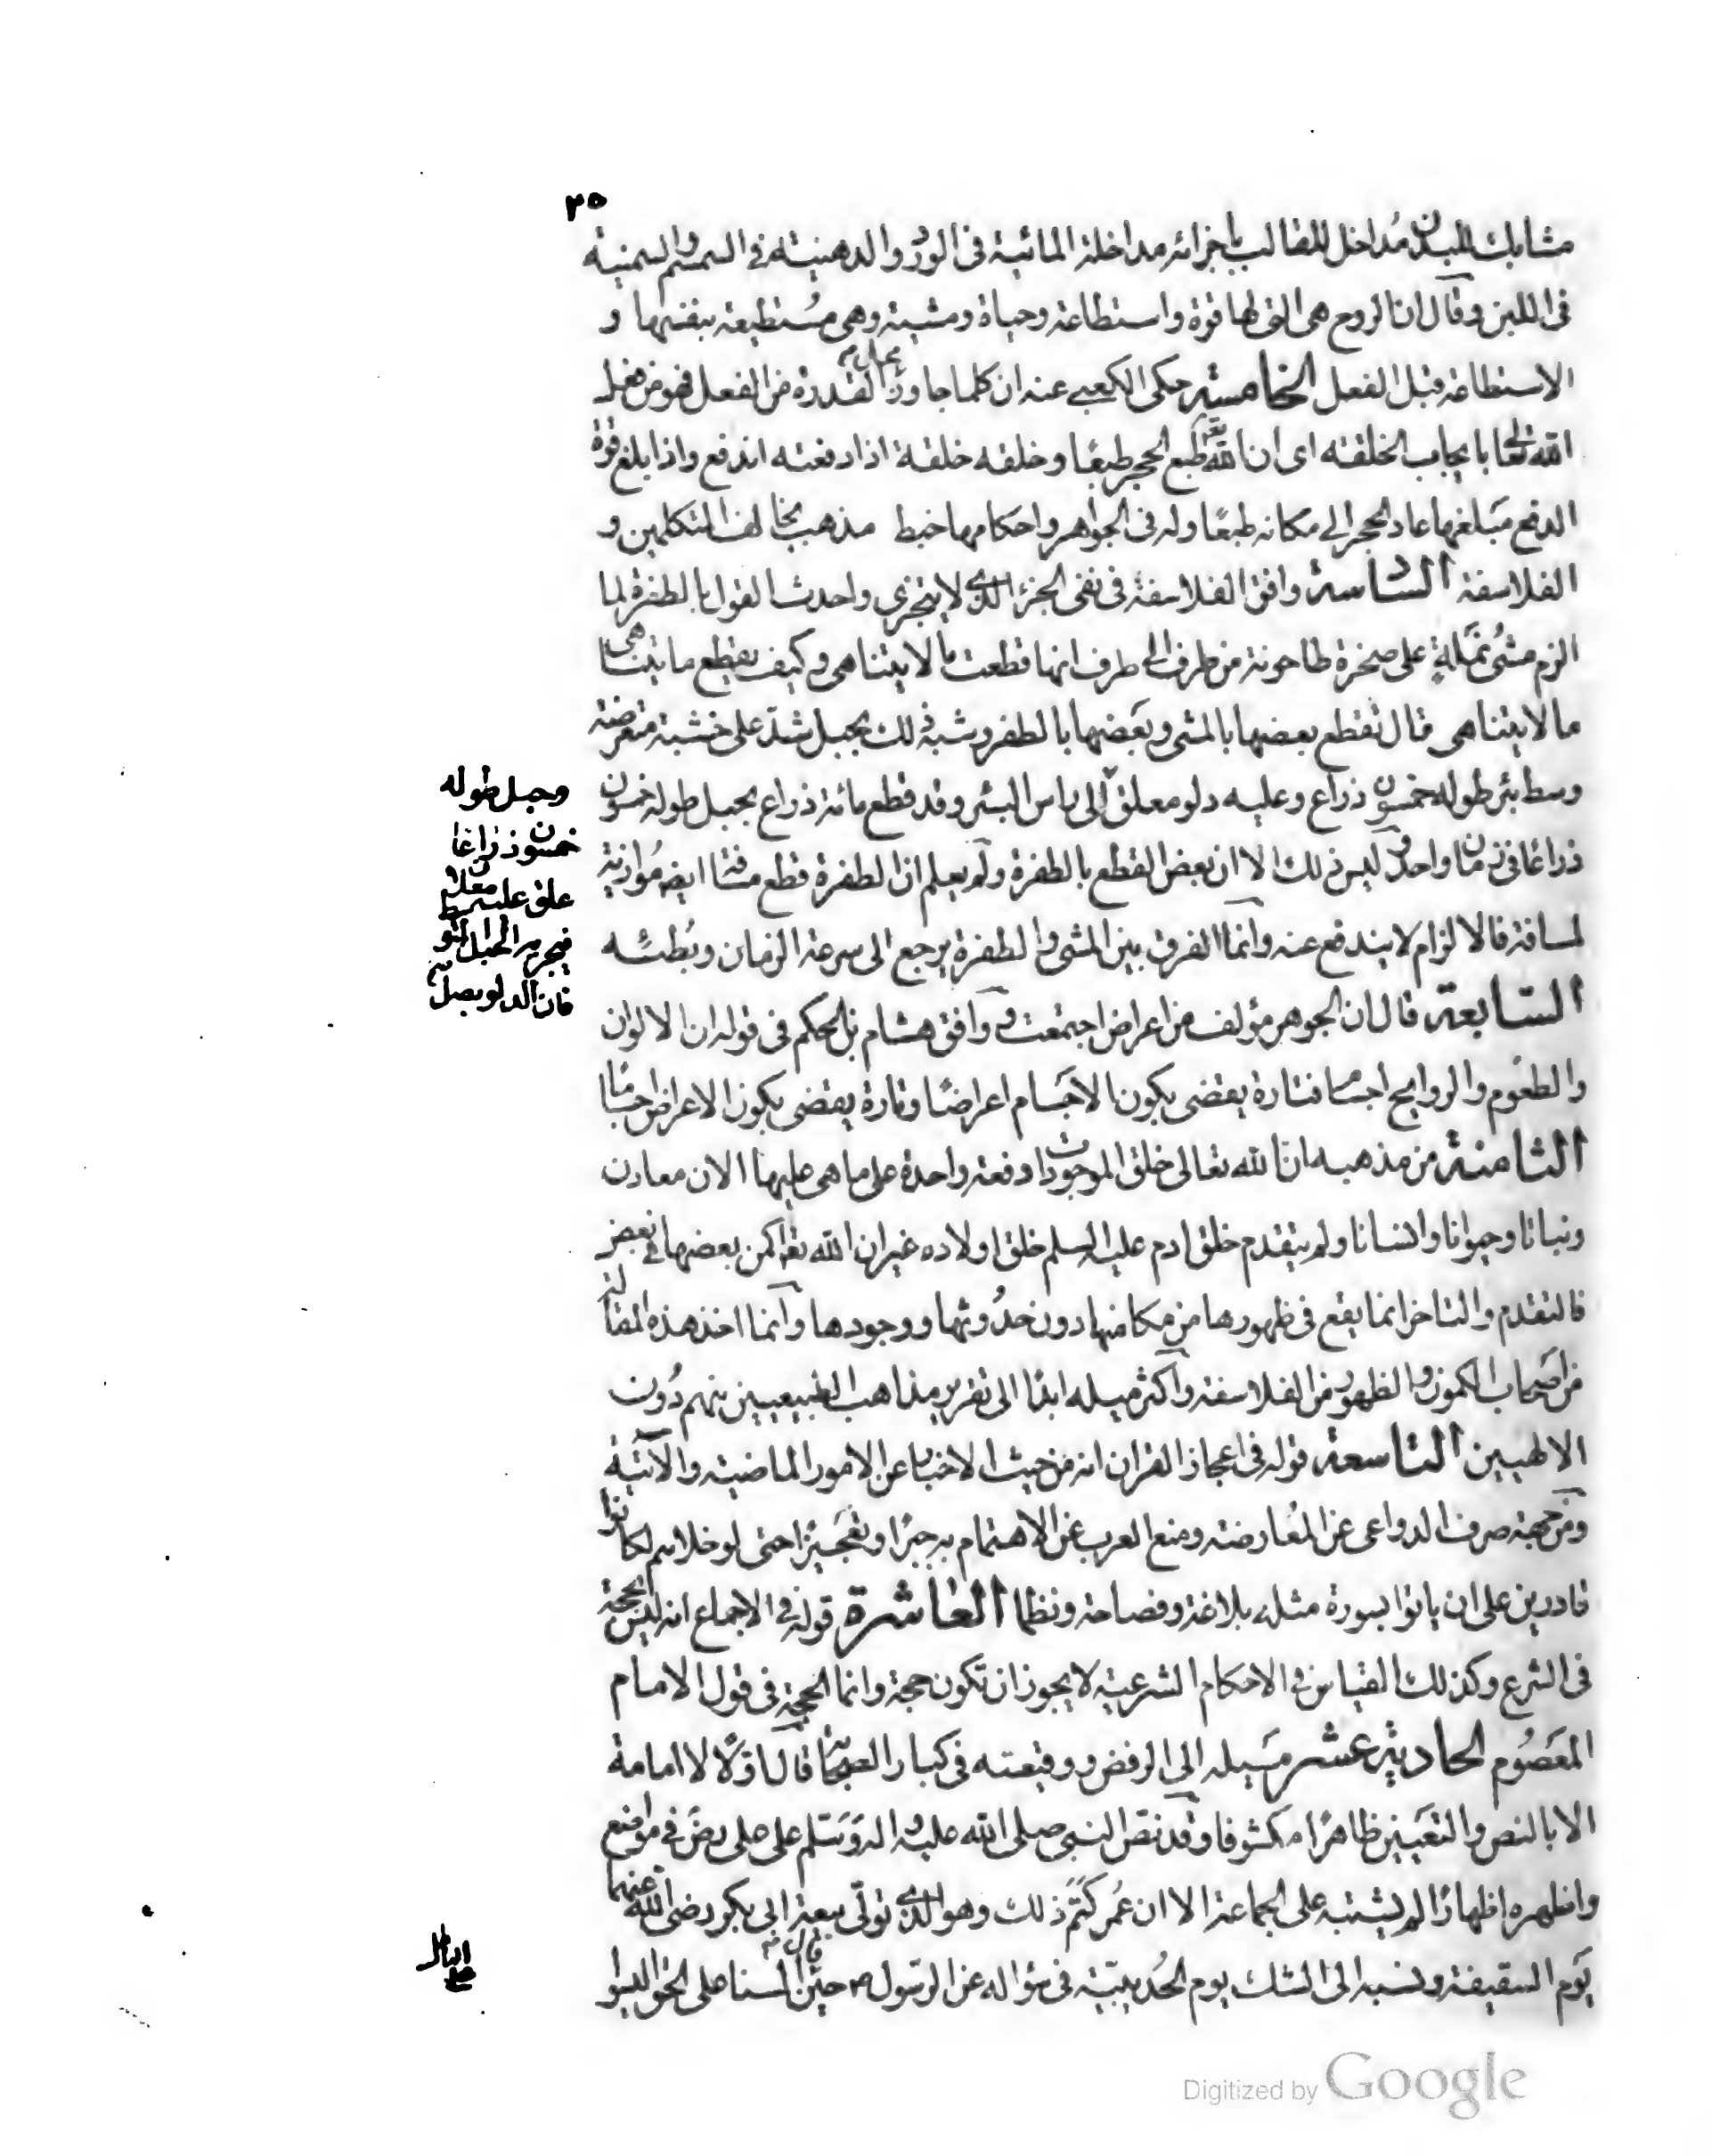 ٣٥
مشابك للبدن مُداخل للقالب باجزائه مداخلة المائية فى الورد والدهنية فى السمسم والسمنية
فى اللبن وقال ان الروح هى التى لها قوة واستطاعة وحياة ومشية وهى مُستطيعة بنفسها و
الاستطاعة قبل الفعل الخامسة حكى الكعبى عنه ان كلما جاوز محل القدرة من الفعل فهو من فعل
الله تعالى بايجاب الخلقه اى ان الله تعا طبع الحجر طبعًا وخلقه خلقة اذا دفعته اندفع واذا بلغ قوة
الدفع مبلغها عاد الحجر الى مكانه طبعًا وله فى الجواهر واحكامها خبط مذهب يخالف المتكلمين و
الفلاسفة السادسة وافق الفلاسفة فى نفى الجزء الذى لا يتجزى واحدث القول بالطفرة لما
الزم مشى نملةٍ على صخرة طاحونة من طرف الى طرف انها قطعت ما لا يتناهى وكيف يقطع ما يتناهى
ما لا يتناهى قال تقطع بعضها بالمشى وبعضها بالطفر وشبه ذلك بحبل شدّ على خشبة متعرضة
وسط بئر طوله خمسون ذراع وعليه دلو معلق الى راس البئر وقد قطع مائة ذراع بحبل طوله خمسون
وحبل طوله
خمسون ذراعا
علق عليه معلاق
فيجر به الحبل المتو
فان الدلو يصل
ذراعًا فى زمان واحد وليس ذلك الا ان بعض القطع بالطفرة ولم يعلم ان الطفرة قطع مسافة ايضا مُوازية
لمسافة فالالزام لا يندفع عنه وانما الفرق بين المشى والطفرة يرجع الى سرعة الزمان وبُطئه
السابعة قال ان الجوهر مؤلف من اعراض اجتمعت ووافق هشام بن الحكم فى قوله ان الالوان
والطعُوم والروايح اجسام فتارة يقضى بكون الاجسام اعراضًا وتارة يقضى بكون الاعراض اجسامًا
الثامنة من مذهبه ان الله تعالى خلق الموجودات دفعة واحدة على ما هى عليها الان معادن
ونباتا وحيوانا وانسانا ولم يتقدم خلق ادم عليه السلم خلق اولاده غير ان الله تعا اكمن بعضها فى بعض
فالتقدم والتاخر انما يقع فى ظهورها من مكامنها دون حدُوثها ووجودها وانما اخذ هذه المقالة
من اصحاب الكمون والظهور من الفلاسفة واكثر ميله ابدًا الى تقرير مذاهب الطبيعيين منهم دُون
الالهيين التاسعة قوله فى اعجاز القران انه من حيث الاخبار عن الامور الماضية والآتية
ومن جهة صرف الدواعى عن المُعارضة ومنع العرب عن الاهتمام به جبرًا وتعجيزًا حتى لو خلاهم لكانوا
قادرين على ان ياتوا بسورة مثله بلاغة وفصاحة ونظما العاشرة قوله فى الاجماع انه ليس بحجة
فى الشرع وكذلك القياس فى الاحكام الشرعية لا يجوز ان تكون حجة وانما الحجة فى قول الامام
المعصُوم الحادية عشر مَيله الى الرفض ووقيعته فى كبار الصحابة قال اوّلًا لا امامة
الا بالنص والتعيين ظاهرًا مكشوفا وقد نصّ النبى صلى الله عليه واله وَسَلم على على رضَ فى مواضع
واظهره اظهارًا لم يشتبه على الجماعة الا ان عُمر كَتَم ذلك وهو الذى تولّى بيعة ابى بكر رضى الله عنهما
يَوم السقيفة ونسبه الى الشك يوم الحُديبيّة فى سؤاله عن الرّسول حين قال السنا على الحق اليسوا